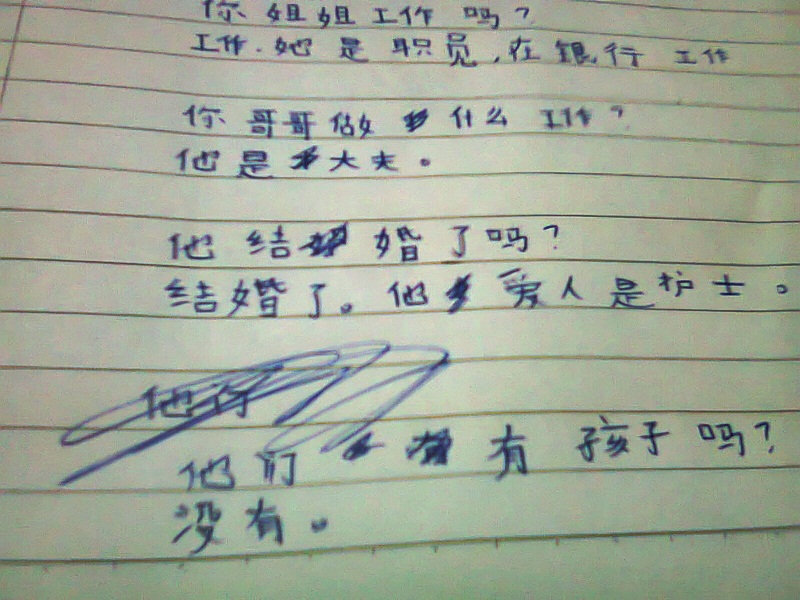 你 姐姐 工作 吗?
工作.她 是 职员,在 银行 工作
你 哥哥 做 什么 工作?
他 是 大夫。
他 结 婚 了 吗?
结婚了。他 爱人 是 护士。
他们 有 孩子 吗?
没有。